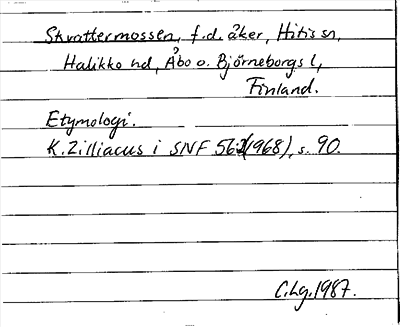 Skrattermossen, f.d. åker, Hitis sn,
Halikko hd, Åbo o. Björneborgs l,
Finland.
Etymologi.
K. Zilliacus i SNF 56:2(1968), s. 90.
C.Lg. 1987.